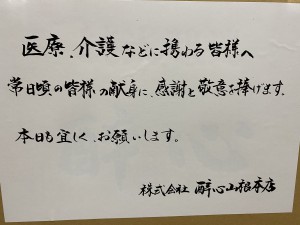 医療、介護などに携わる皆様へ
常日頃の皆様の献身に、感謝と敬意を捧げます。
本日も宜しく、お願いします。
株式会社 酔心山根本店